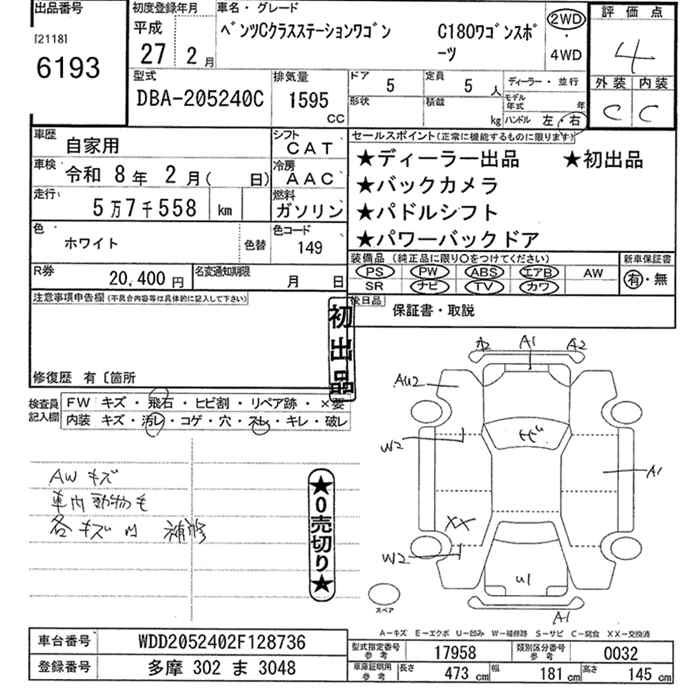 出品番号
[2118]
6193
初度登録年月
平成
27 年 2 月
車名・グレード
ベンツCクラスステーションワゴン C180ワゴンスポーツ
2WD
・
4WD
評価点
4
外装 内装
C C
型式
DBA-205240C
排気量
1595
CC
ドア
5
定員
5 人
形状
積載
kg
ディーラー・並行
モデル年式
年
ハンドル 左・右
車歴
自家用
シフト
CAT
車検
令和 8年 2月( 日)
冷房
AAC
走行
5万7千558 km
燃料
ガソリン
色
ホワイト
色替
色コード
149
R券
20,400 円
名変通知期限
月 日
セールスポイント(正常に機能するものに限ります)
★ディーラー出品 ★初出品
★バックカメラ
★パドルシフト
★パワーバックドア
装備品(純正品に限り○をつけてください)
PS PW ABS エアB AW
SR ナビ TV カワ
新車保証書
有・無
後日品
保証書・取説
注意事項申告欄(不具合内容等は具体的に記入して下さい)
初出品
修復歴 有〔箇所
検査員記入欄
FW キズ・飛石・ヒビ割・リペア跡・×要
内装 キズ・汚レ・コゲ・穴・スレ・キレ・破レ
AW キズ
車内動物毛
各キズ凹 補修
★0売切り★
A2 A1 A2
AU2
W2
A1
XX
W2
U1
A1
スペア
A-キズ E-エクボ U-凹み W-補修跡 S-サビ C-腐食 XX-交換済
車台番号
WDD2052402F128736
登録番号
多摩 302 ま 3048
型式指定番号
参考
17958
類別区分番号
参考
0032
車庫証明用
参考
長さ 473 cm 幅 181 cm 高さ 145 cm